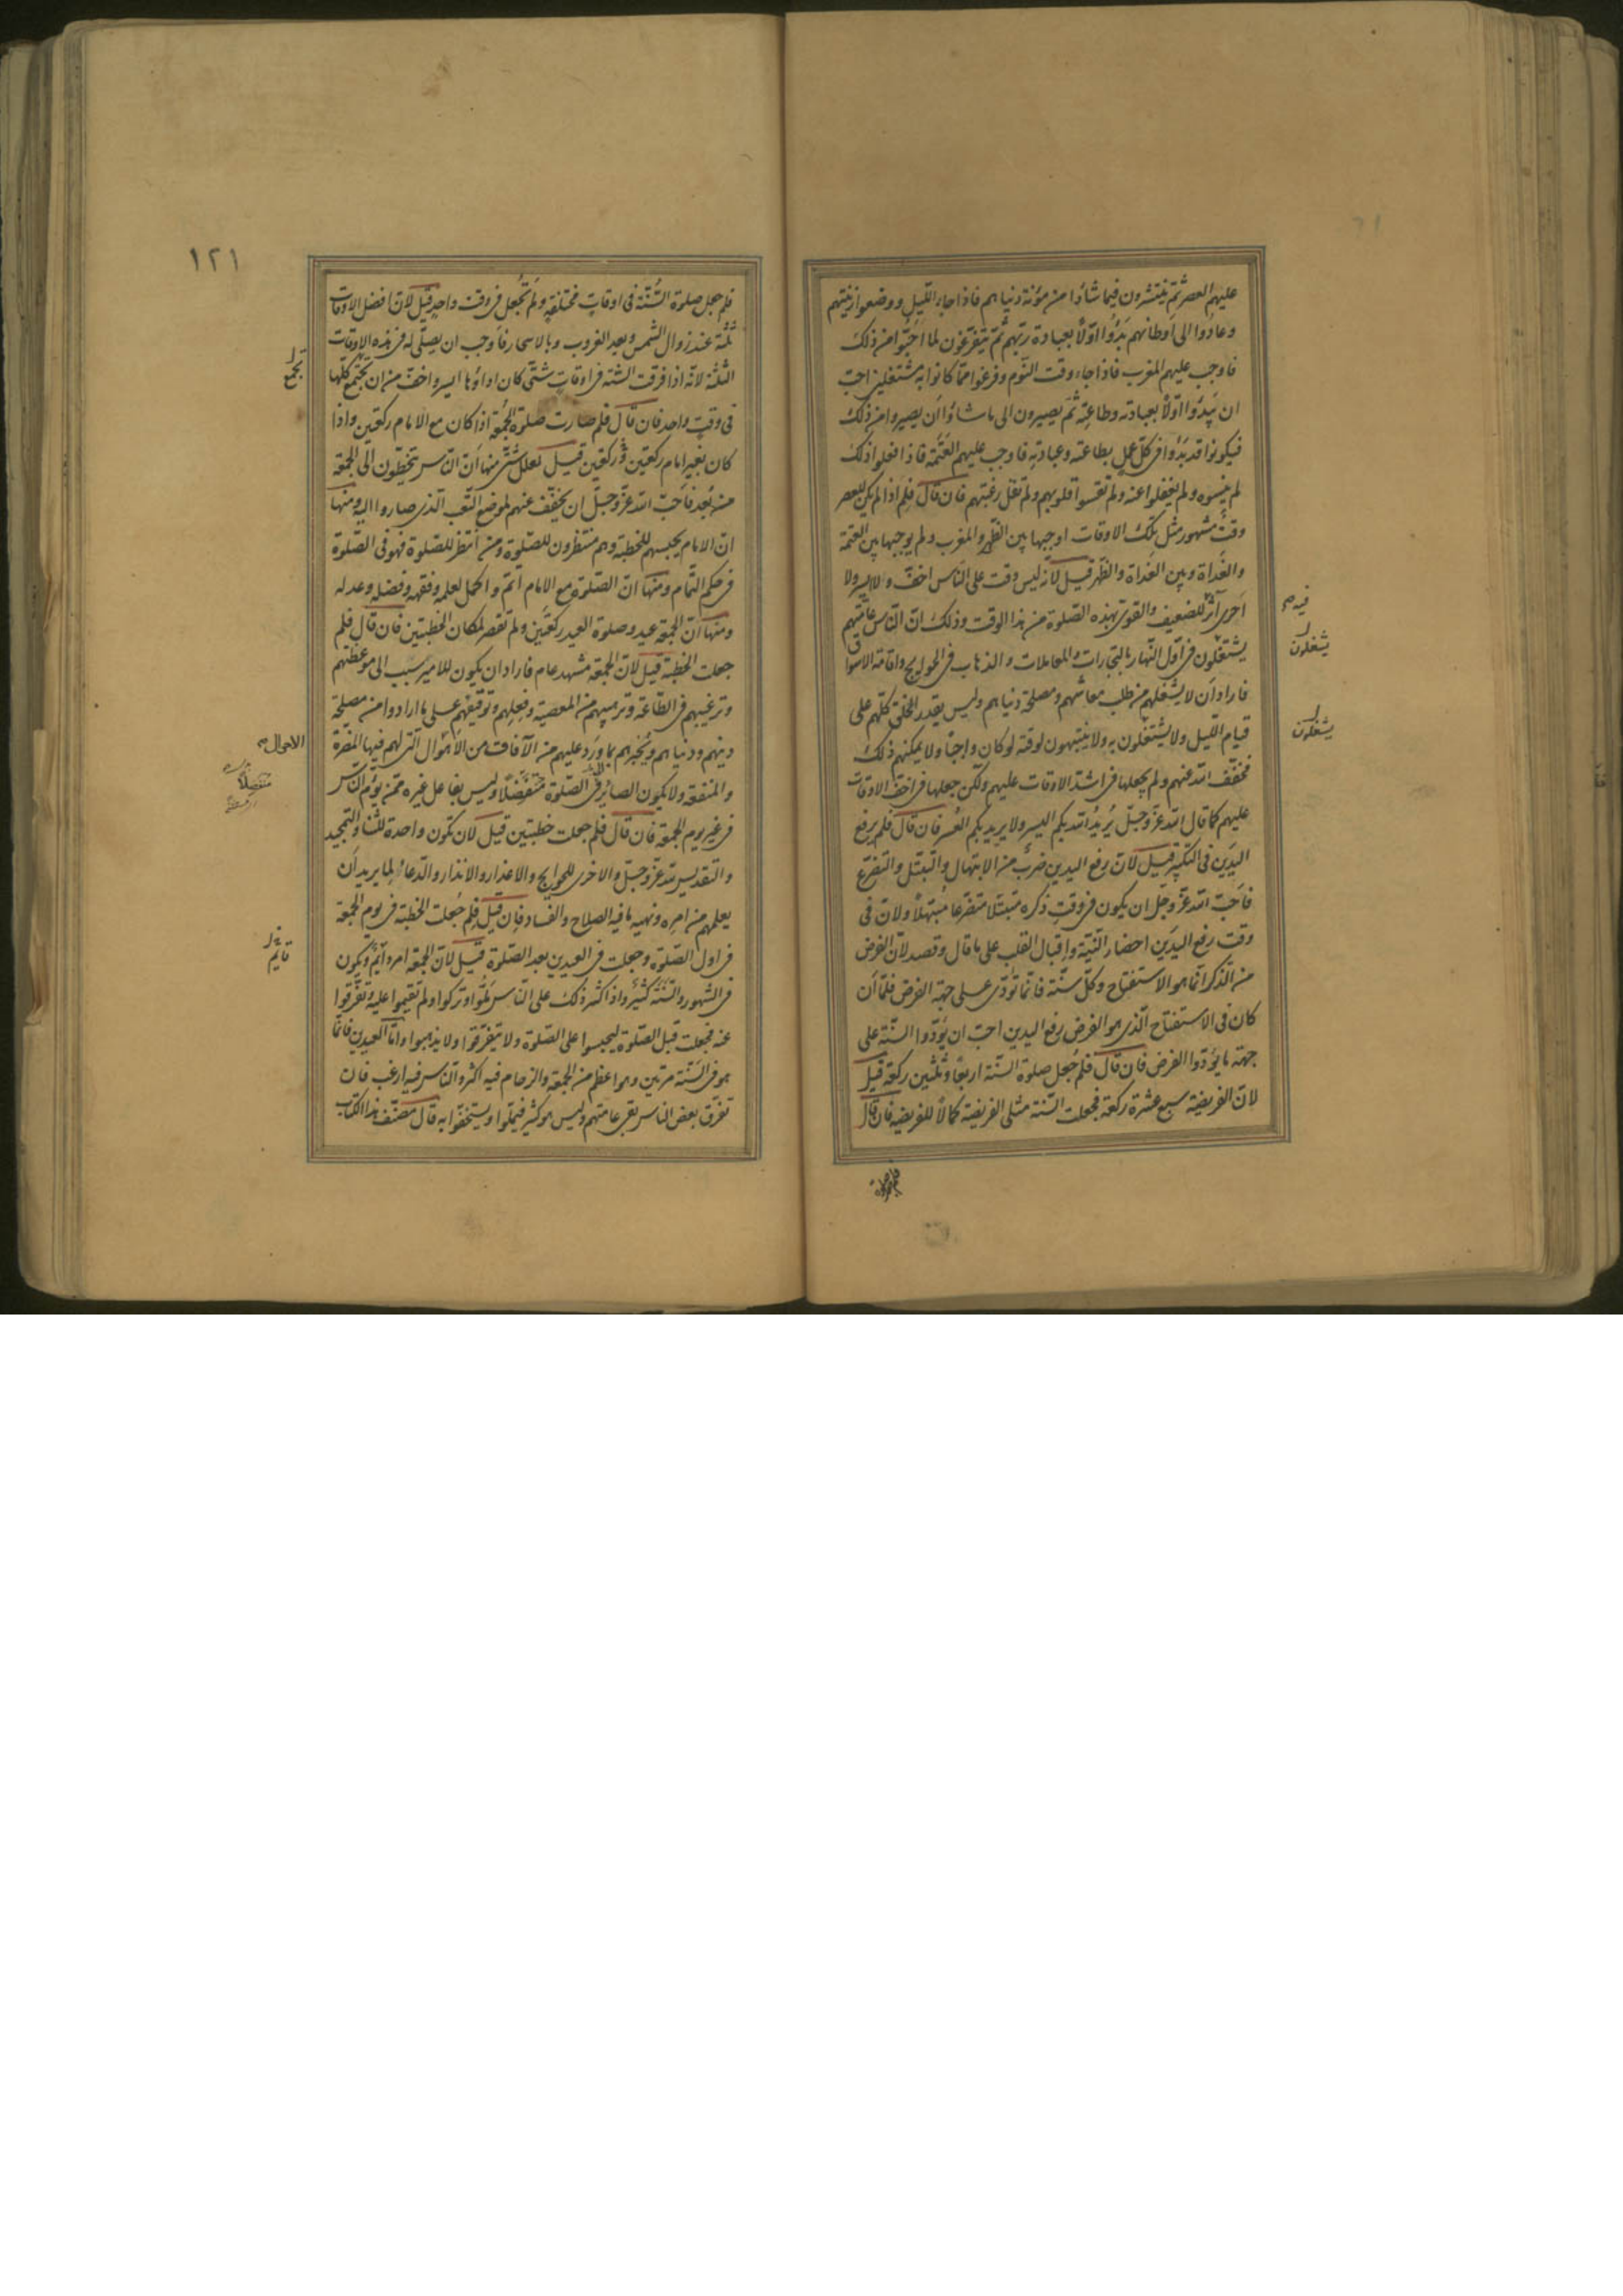 عليهم العصر ثم ينتشرون فيما شاؤا من مؤنة دنياهم فاذا جاء الليل ووضعوا زينتهم
وعادوا الى اوطانهم بدؤا اولا بعبادة ربهم ثم يتفرغون لما احبوا من ذلك
فاوجب عليهم المغرب فاذا جاء وقت النوم وفرغوا مما كانوا به مشتغلين احب
ان يبدؤا اولا بعبادته وطاعته ثم يصيرون الى ما شاؤا ان يصيروا من ذلك
فيكونوا قد بدؤا فى كل عمل بطاعته وعبادته فاوجب عليهم العتمة فاذا فعلوا ذلك
لم ينسوه ولم يغفلوا عنه ولم تقسوا قلوبهم ولم تقل رغبتهم فان قال فلم اذا لم يكن للعصر
وقت مشهور مثل تلك الاوقات اوجبها بين الظهر والمغرب ولم يوجبها بين العتمة
والغداة وبين الغداة والظهر قيل لانه ليس وقت على الناس اخف والا ايسر ولا
احرى ان للضعيف والقوى بهذه الصلوة من هذا الوقت وذلك ان الناس عامتهم
يشتغلون فى اول النهار بالتجارات والمعاملات والذهاب فى الحوايج واقامة الاسواق
فاراد ان لا يشغلهم من طلب معاشهم ومصلحة دنياهم وليس يقدر الخلق كلهم على
قيام الليل ولا يشتغلون به ولا ينتبهون لوقته لو كان واجبا ولا يمكنهم ذلك
فخفف الله عنهم ولم يجعلها فى اشد الاوقات عليهم ولكن جعلها فى اخف الاوقات
عليهم كما قال الله عز وجل يريد الله بكم اليسر ولا يريد بكم العسر فان قال فلم يرفع
اليدين فى التكبير قيل لان رفع اليدين ضرب من الابتهال والتبتل والتضرع
فاحب الله عز وجل ان يكون فى وقت ذكره متبتلا متضرعا مبتهلا ولان فى
وقت رفع اليدين احضار النية واقبال القلب على ما قال وقصد لان الفرض
من الذكر انما هو الاستفتاح وكل سنة فانما تؤدى على جهة الفرض فلما ان
كان فى الاستفتاح الذى هو الفرض رفع اليدين احب ان يؤدوا السنة على
جهة ما يؤدوا الفرض فان قال فلم جعل صلوة السنة اربعا وثلثين ركعة قيل
لان الفريضة سبع عشرة ركعة فجعلت السنة مثلى الفريضة كمالا للفريضة فان قال
فيه
يشغلون
يشغلون
١٢١
فلم جعل صلوة السنة فى اوقات مختلفة ولم تجعل فى وقت واحد قيل لان افضل الاوقات
ثلثة عند زوال الشمس وبعد الغروب وبالاسحار فاوجب ان يصلى له فى هذه الاوقات
الثلثة لانه اذا فرقت السنة فى اوقات شتى كان اداؤها ايسر واخف من ان تجتمع كلها
فى وقت واحد فان قال فلم صارت صلوة الجمعة اذا كان مع الامام ركعتين واذا
كان بغير امام ركعتين وركعتين قيل لعلل شتى منها ان الناس يتخطون الى الجمعة
من بعد فاحب الله عز وجل ان يخفف عنهم لموضع التعب الذى صاروا اليه ومنها
ان الامام يحبسهم للخطبة وهم منتظرون للصلوة ومن انتظر للصلوة فهو فى الصلوة
فى حكم التمام ومنها ان الصلوة مع الامام اتم واكمل لعلمه وفقهه وفضله وعدله
ومنها ان الجمعة عيد وصلوة العيد ركعتين ولم تقصر لمكان الخطبتين فان قال فلم
جعلت الخطبة قيل لان الجمعة مشهد عام فاراد ان يكون للامير سبب الى موعظتهم
وترغيبهم فى الطاعة وترهيبهم من المعصية وفعلهم وتوقيفهم على ما ارادوا من مصلحة
دينهم ودنياهم ويخبرهم بما ورد عليهم من الآفات من الاهوال التى لهم فيها المضرة
والمنفعة ولا يكون الصائر فى الصلوة منفصلا وليس بفاعل غيره ممن يؤم الناس
فى غير يوم الجمعة فان قال فلم جعلت خطبتين قيل لان تكون واحدة للثناء والتمجيد
والتقديس لله عز وجل والاخرى للحوايج والاعذار والانذار والدعاء لما يريد ان
يعلمهم من امره ونهيه ما فيه الصلاح والفساد فان قيل فلم جعلت الخطبة فى يوم الجمعة
فى اول الصلوة وجعلت فى العيدين بعد الصلوة قيل لان الجمعة امر دائم ويكون
فى الشهور والسنة كثير واذا كثر ذلك على الناس ملوا وتركوا ولم يقيموا عليه وتفرقوا
عنه فجعلت قبل الصلوة ليحبسوا على الصلوة ولا يتفرقوا ولا يذهبوا واما العيدين فانما
هو فى السنة مرتين وهو اعظم من الجمعة والزحام فيه اكثر والناس فيه ارغب فان
تفرق بعض الناس بقى عامتهم وليس هو كثير فيملوا ويستخفوا به قال مصنف هذا الكتاب
تجمع
الاحوال
منفصلا
قايم
فلم جعل صلوة